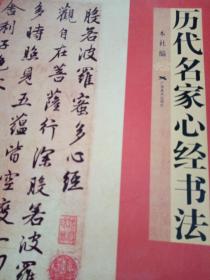 历代名家心经书法
本社编
般若波羅蜜多心經
觀自在菩薩行深般若波羅
多時照見五蘊皆空度一
舍利子